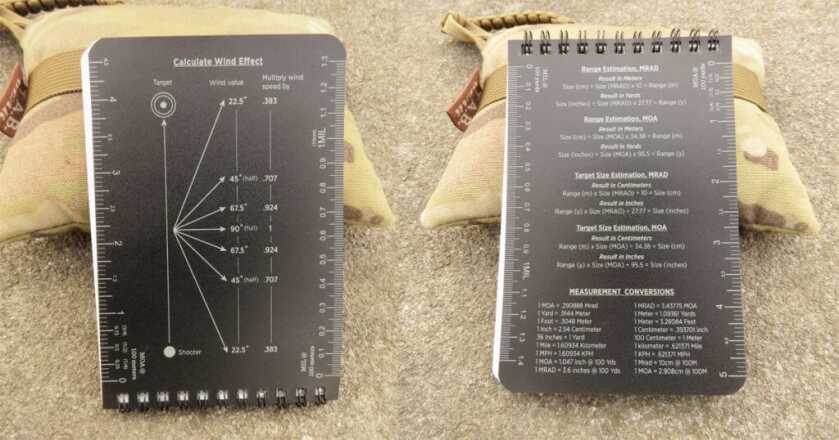 Calculate Wind Effect
Target
Wind value
Multiply wind
speed by
22.5° .383
45° (half) .707
67.5° .924
90° (full) 1
67.5° .924
45° (half) .707
22.5° .383
Shooter
MOA @
100 meters
0
1
2
3
4
1.3
1.2
1.1
1MIL
0.9
0.8
0.7
0.6
0.5
0.4
0.3
0.2
0.1
0
Range Estimation, MRAD
Result in Meters
Size (cm) ÷ Size (MRAD) x 10 = Range (m)
Result in Yards
Size (inches) ÷ Size (MRAD) x 27.77 = Range (y)
Range Estimation, MOA
Result in Meters
Size (cm) ÷ Size (MOA) x 34.38 = Range (m)
Result in Yards
Size (inches) ÷ Size (MOA) x 95.5 = Range (y)
Target Size Estimation, MRAD
Result in Centimeters
Range (m) x Size (MRAD) ÷ 10 = Size (cm)
Result in Inches
Range (y) x Size (MRAD) ÷ 27.77 = Size (inches)
Target Size Estimation, MOA
Result in Centimeters
Range (m) x Size (MOA) ÷ 34.38 = Size (cm)
Result in Inches
Range (y) x Size (MOA) ÷ 95.5 = Size (inches)
MEASUREMENT CONVERSIONS
1 MOA = .290888 Mrad
1 Yard = .9144 Meter
1 Foot = .3048 Meter
1 Inch = 2.54 Centimeter
36 Inches = 1 Yard
1 Mile = 1.60934 Kilometer
1 MPH = 1.60934 KPH
1 MOA = 1.047 Inch @ 100 Yds
1 MRAD = 3.6 inches @ 100 Yds
1 MRAD = 3.43775 MOA
1 Meter = 1.09361 Yards
1 Meter = 3.28084 Feet
1 Centimeter = .393701 Inch
100 Centimeter = 1 Meter
1 kilometer = .621371 Mile
1 KPH = .621371 MPH
1 Mrad = 10cm @ 100M
1 MOA = 2.908cm @ 100M